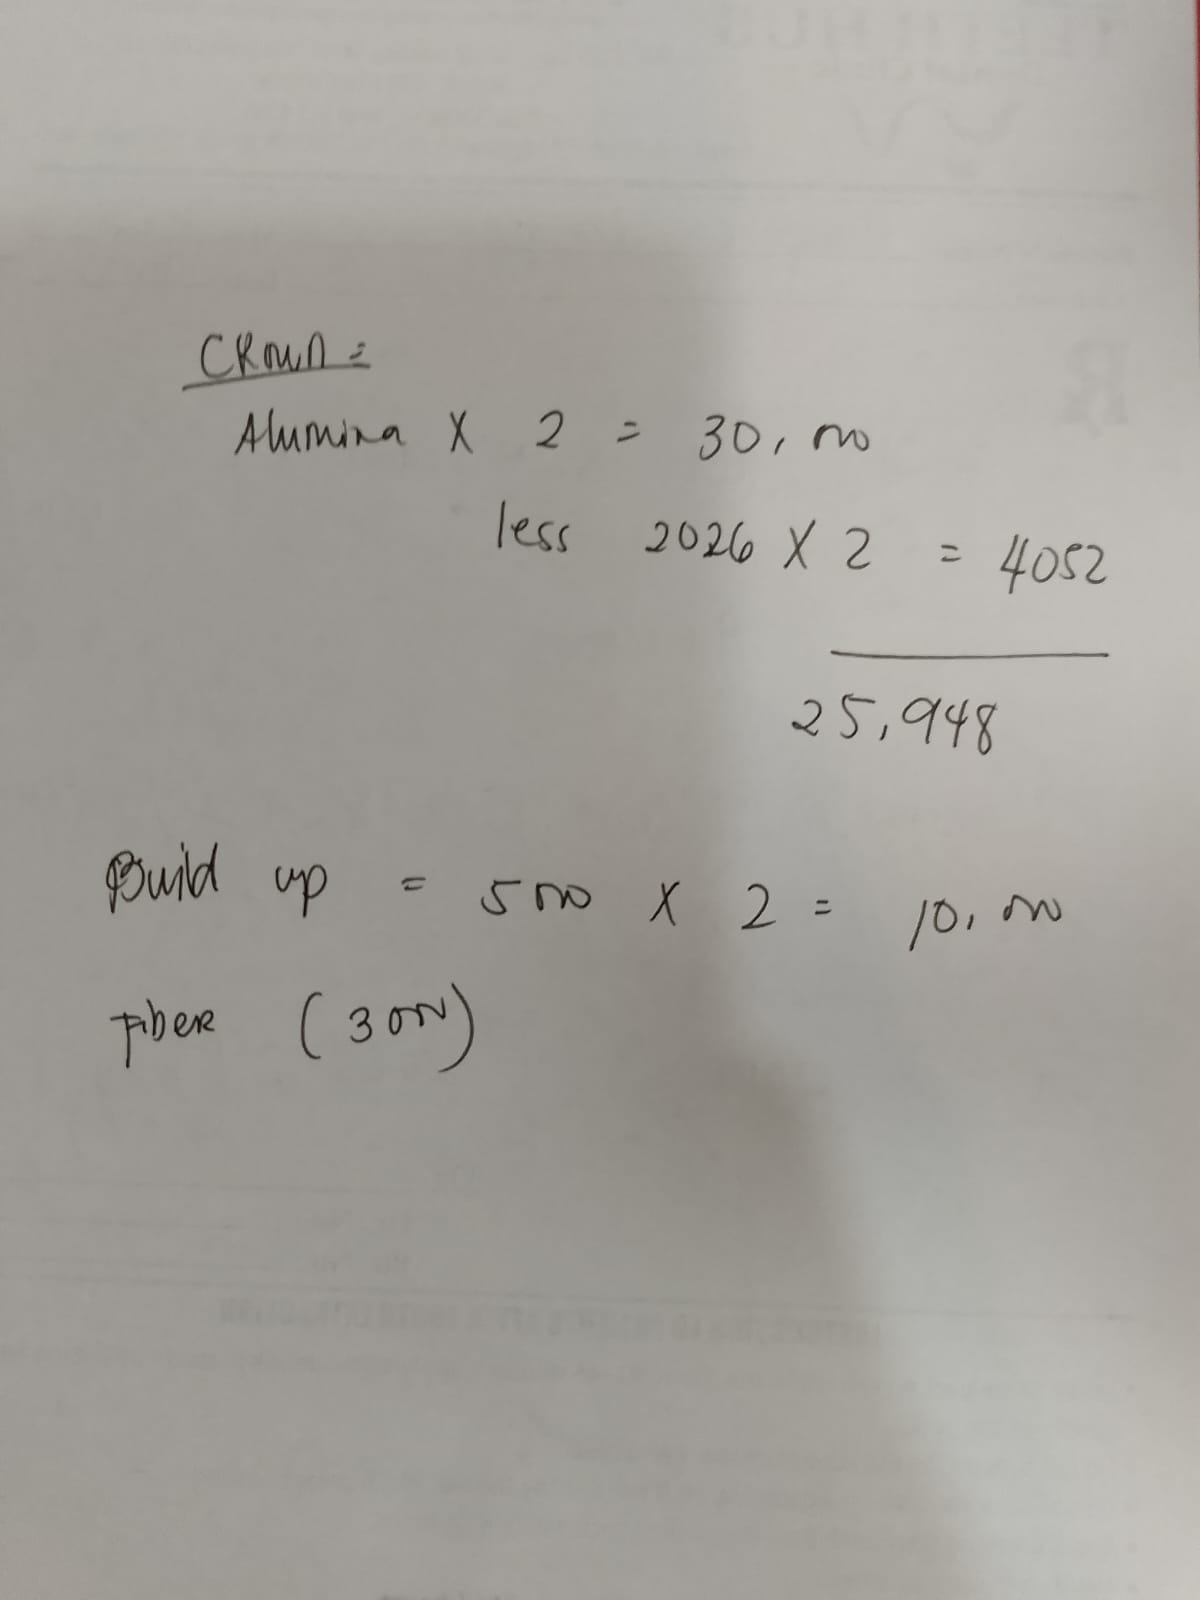 CROWN =
Alumina X 2 = 30,000
less 2026 X 2 = 4052
25,948
Build up = 5000 X 2 = 10,000
Fiber (3000)